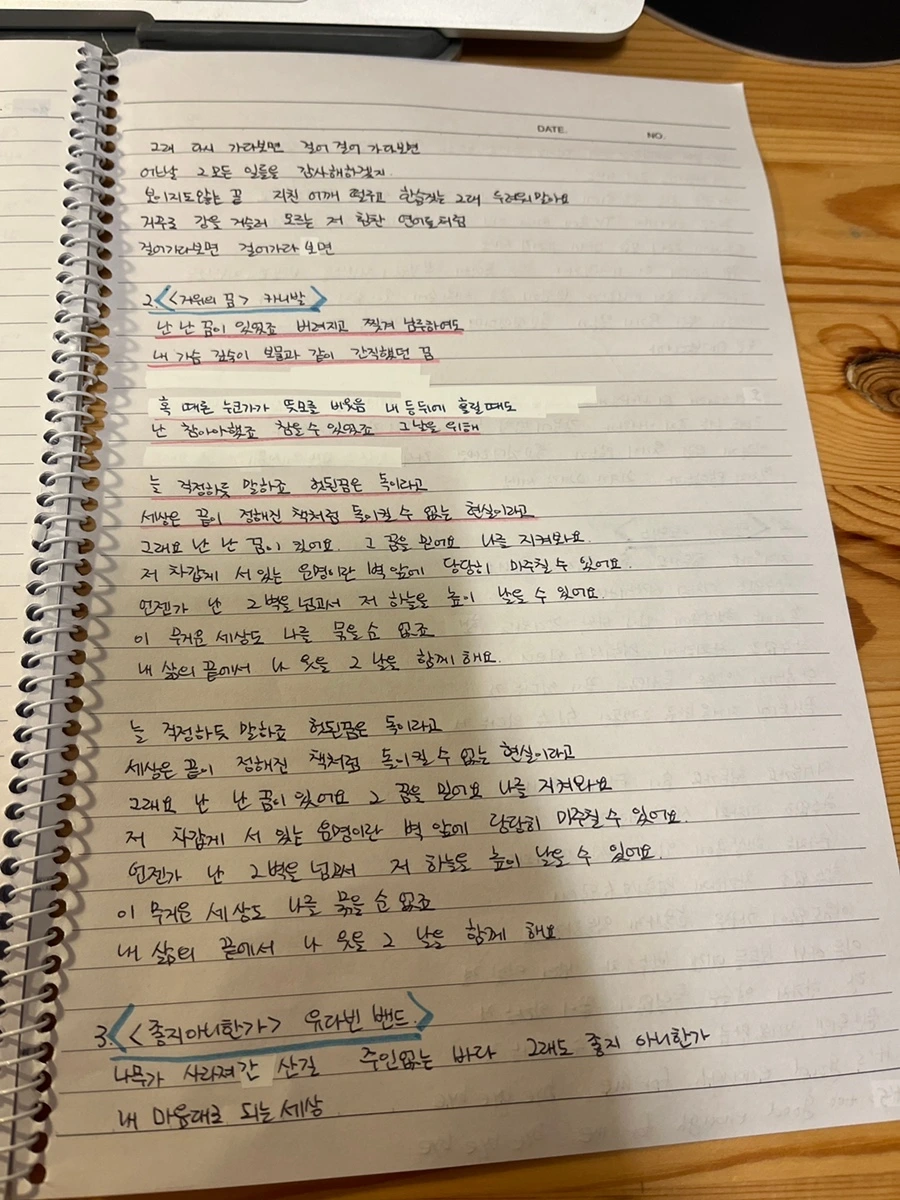 DATE. NO.
그래 다시 가다보면 걸어 걸어 가다보면
어느날 그 모든 일들을 감사해하겠지
보이지도않는 끝 지친 어깨 떨구고 한숨짓는 그대 두려워말아요
거꾸로 강을 거슬러 오르는 저 힘찬 연어들처럼
걸어가다보면 걸어가다 보면
2. <거위의 꿈> 카니발
난 난 꿈이 있었죠 버려지고 찢겨 남루하여도
내 가슴 깊숙이 보물과 같이 간직했던 꿈
혹 때론 누군가가 뜻모를 비웃음 내 등뒤에 흘릴때도
난 참아야했죠 참을 수 있었죠 그날을 위해
늘 걱정하듯 말하죠 헛된꿈은 독이라고
세상은 끝이 정해진 책처럼 돌이킬 수 없는 현실이라고
그래요 난 난 꿈이 있어요. 그 꿈을 믿어요 나를 지켜봐요.
저 차갑게 서 있는 운명이란 벽 앞에 당당히 마주칠 수 있어요.
언젠가 난 그 벽을 넘고서 저 하늘을 높이 날을 수 있어요.
이 무거운 세상도 나를 묶을 순 없죠
내 삶의 끝에서 나 웃을 그 날을 함께 해요.
늘 걱정하듯 말하죠 헛된꿈은 독이라고
세상은 끝이 정해진 책처럼 돌이킬 수 없는 현실이라고
그래요 난 난 꿈이 있어요 그 꿈을 믿어요 나를 지켜봐요
저 차갑게 서 있는 운명이란 벽 앞에 당당히 마주칠 수 있어요.
언젠가 난 그 벽을 넘고서 저 하늘을 높이 날을 수 있어요.
이 무거운 세상도 나를 묶을 순 없죠
내 삶의 끝에서 나 웃을 그 날을 함께 해요
3. <좋지아니한가> 유다빈 밴드.
나무가 사라져간 산길 주인없는 바다 그래도 좋지 아니한가
내 마음대로 되는 세상